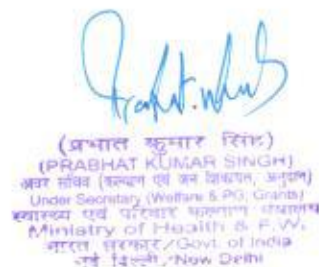 Prabhat
(प्रभात कुमार सिंह)
(PRABHAT KUMAR SINGH)
अवर सचिव (कल्याण एवं जन शिकायत, अनुदान)
Under Secretary (Welfare & PG, Grants)
स्वास्थ्य एवं परिवार कल्याण मंत्रालय
Ministry of Health & F.W.
भारत सरकार/Govt. of India
नई दिल्ली/New Delhi